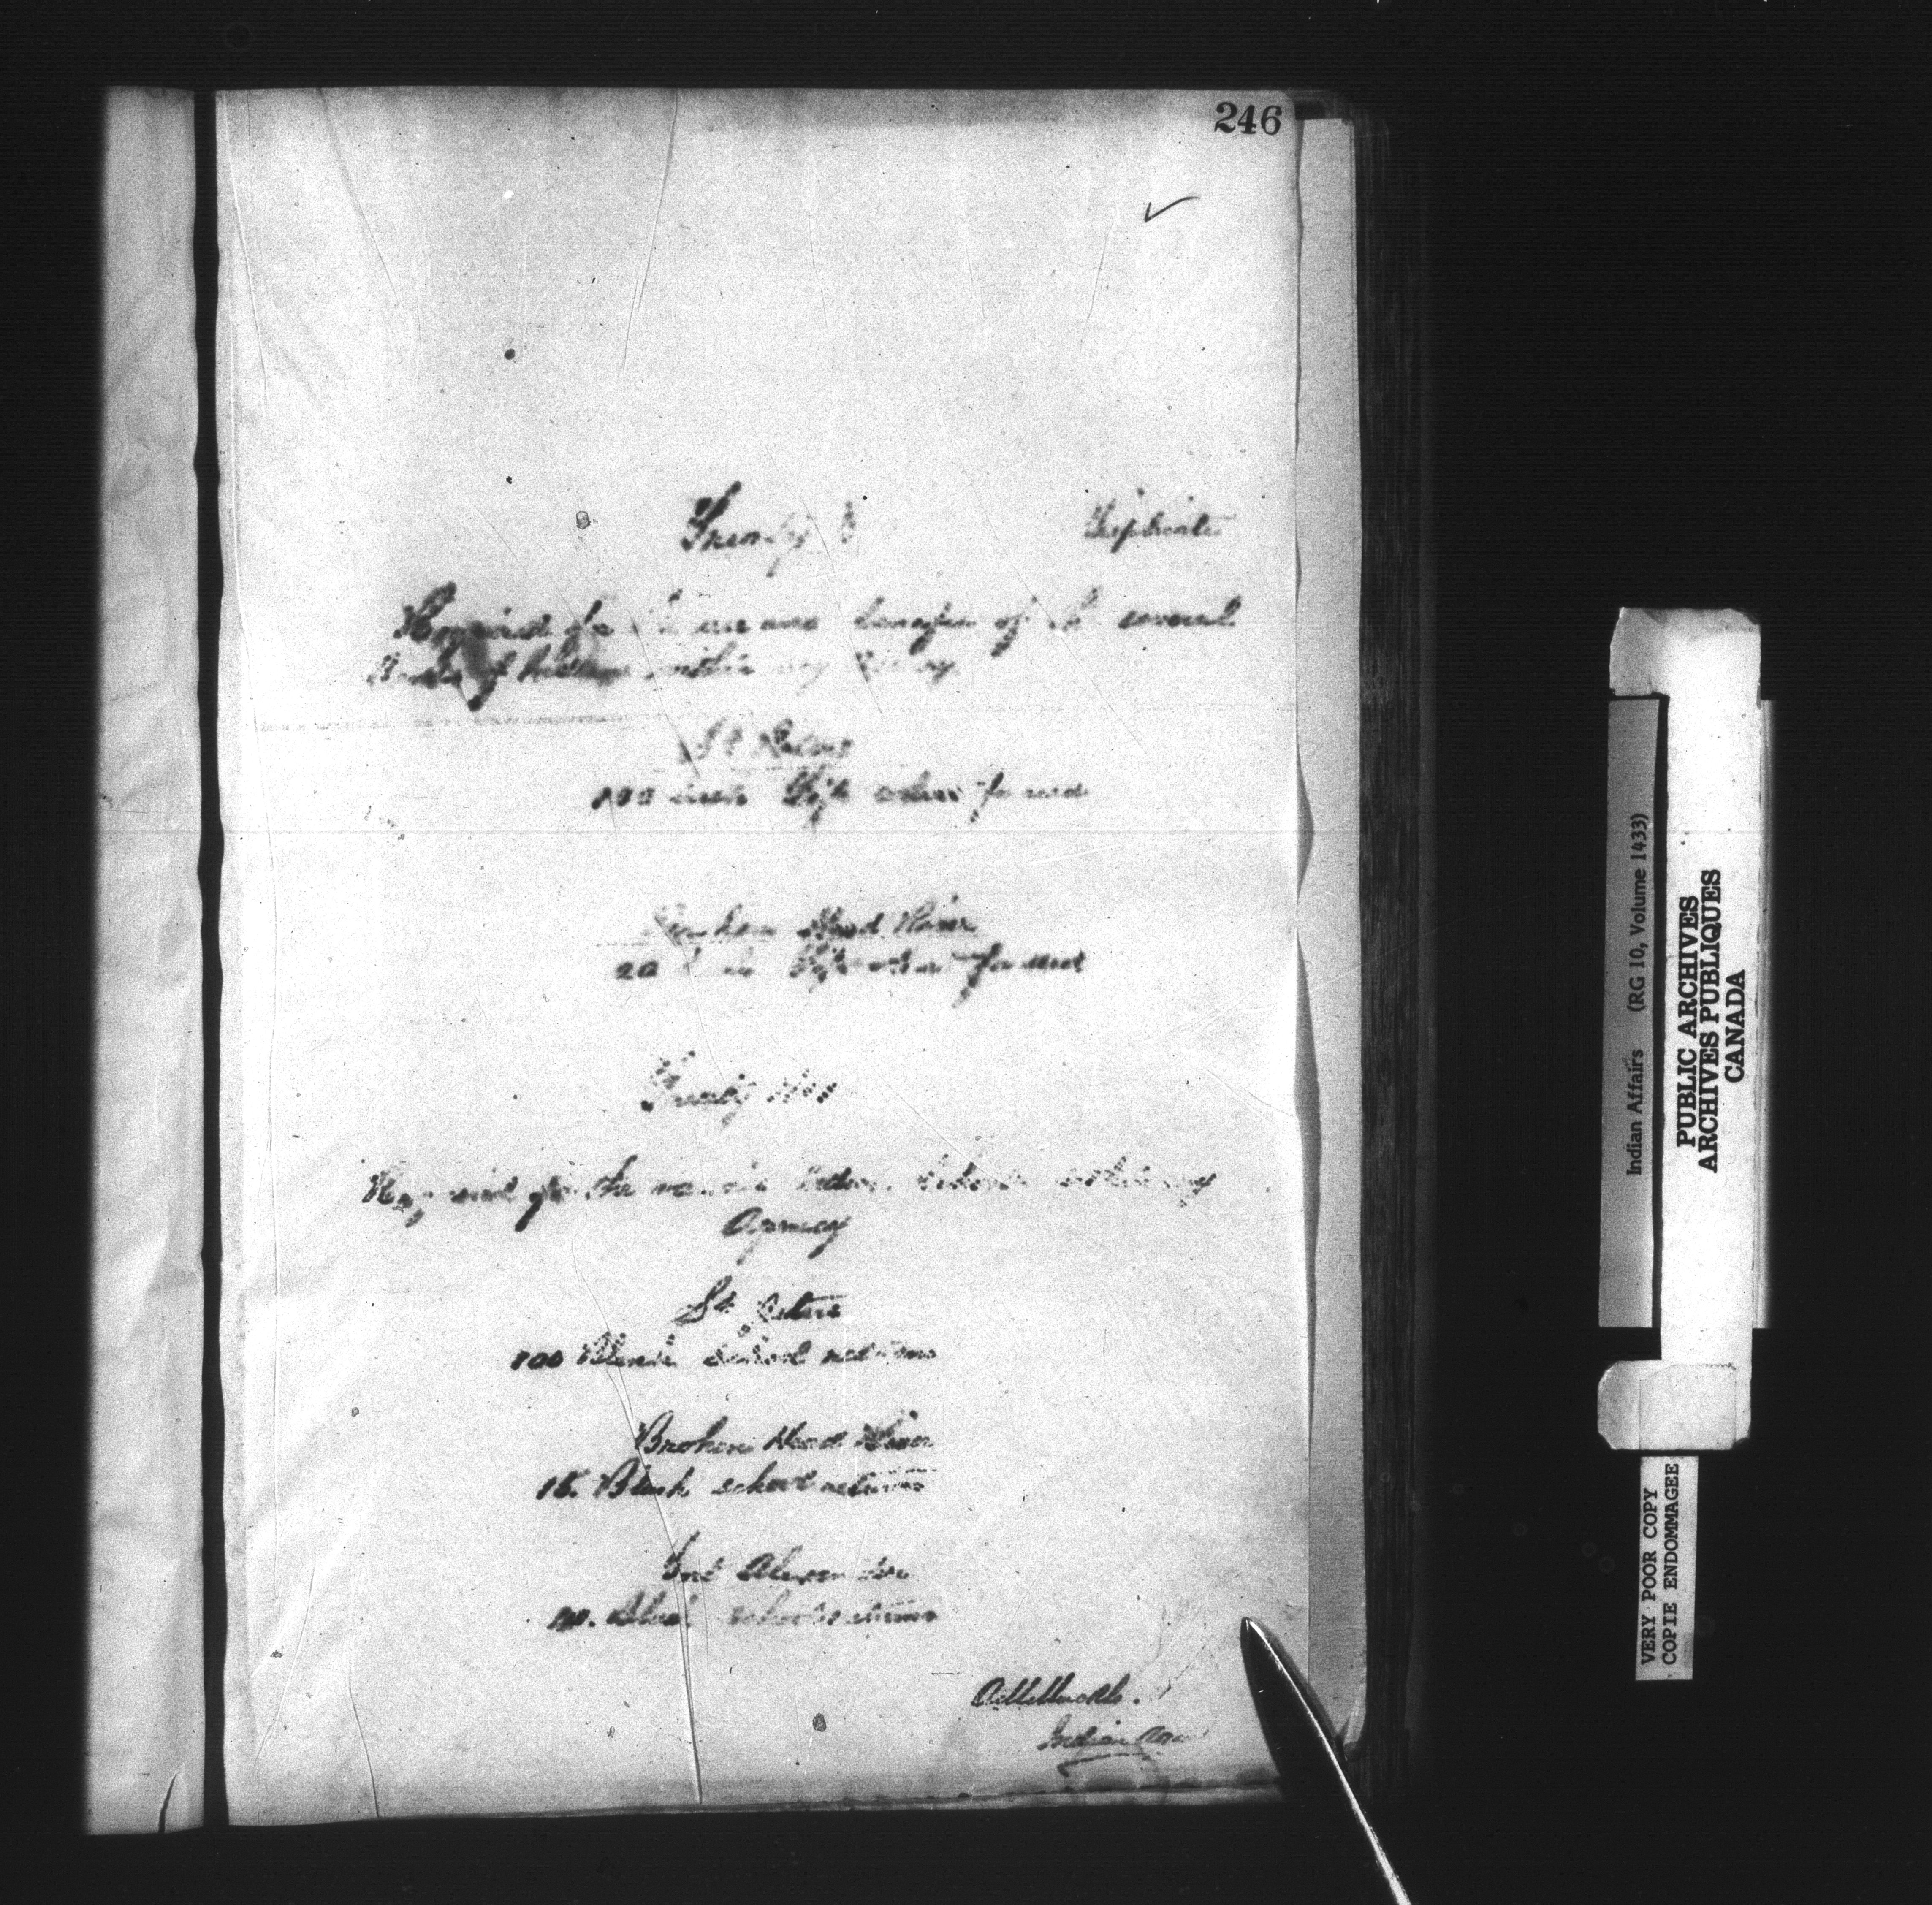 246
Treaty
Triplicate
Required for the use and benefit of the several
Bands of Indians within my Agency
St Peters
100 bush Fyfe wheat for seed
Broken Head River
20 bush Fyfe wheat for seed
Treaty
Required for the various Indian Schools within my
Agency
St. Peters
100 Blank school returns
Broken Head River
Blank school returns
Fort Alexander
Blank school returns
Indian
Indian Affairs (RG 10, Volume 1433)
PUBLIC ARCHIVES
ARCHIVES PUBLIQUES
CANADA
VERY POOR COPY
COPIE ENDOMMAGEE